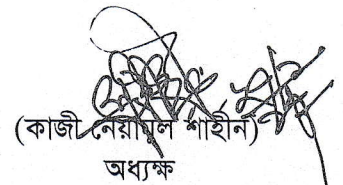 (কাজী নেয়ামুল শাহীন)
অধ্যক্ষ